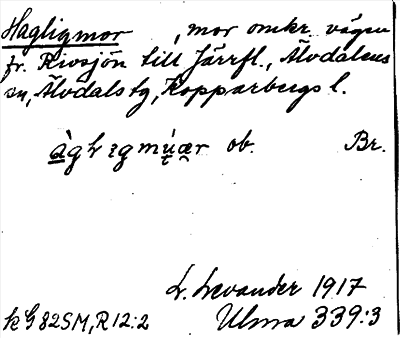 Hagligmor , mor omkr. vägen
fr. Rivsjön till Järrfl., Älvdalens
sn, Älvdals tg, Kopparbergs l.
ob. Br.
L. Levander 1917
kG82SM, R12:2 Ulma 339:3